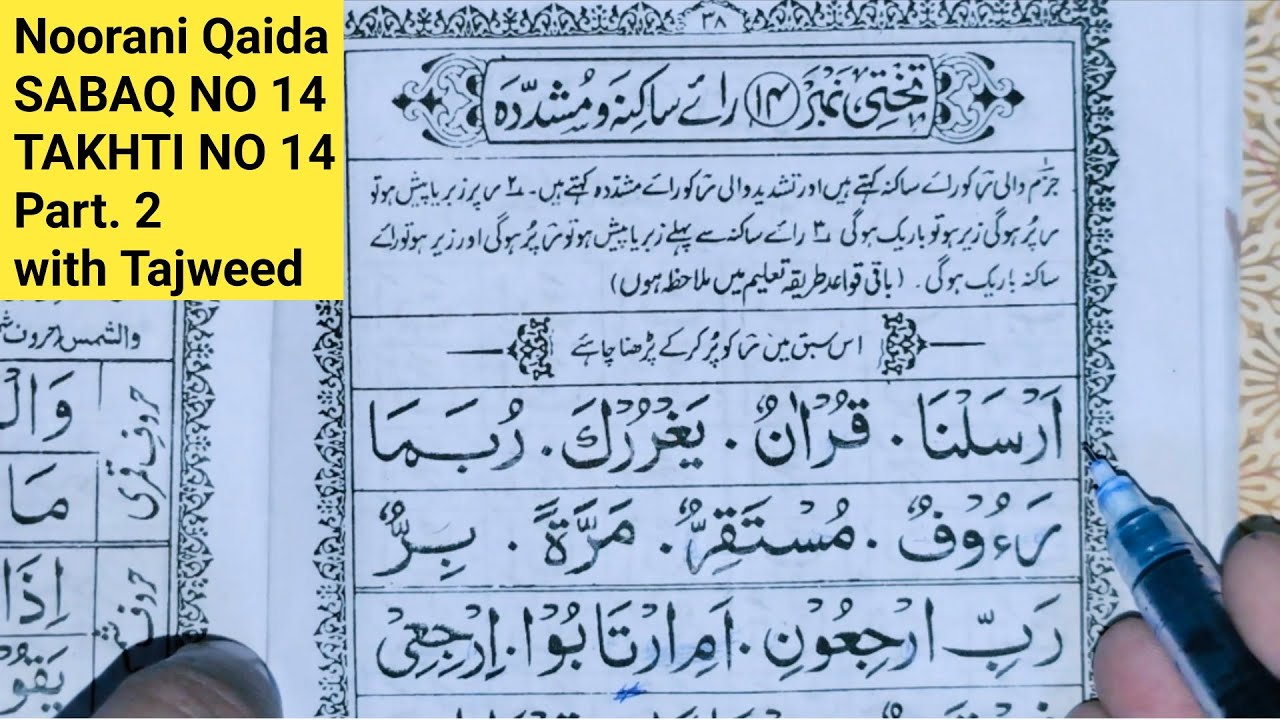 Noorani Qaida
SABAQ NO 14
TAKHTI NO 14
Part. 2
with Tajweed
٣٨
تختی نمبر ۱۴ رائے ساکنہ و مشدّدہ
جزم والی ر کو رائے ساکنہ کہتے ہیں اور تشدید والی ر کو رائے مشدّدہ کہتے ہیں۔ ۲ ر پر زبر یا پیش ہو تو
ر پُر ہوگی زیر ہو تو باریک ہوگی ۳ رائے ساکنہ سے پہلے زبر یا پیش ہو تو ر پُر ہوگی اور زیر ہو تو رائے
ساکنہ باریک ہوگی۔ (باقی قواعد طریقہ تعلیم میں ملاحظہ ہوں)
اس سبق میں را کو پُر کر کے پڑھنا چاہئے
اَرْسَلْنَا ۔ قُرْاٰنٌ ۔ يَغْرُرْكَ ۔ رُبَمَا
رَءُوْفٌ ۔ مُسْتَقِرٌّ ۔ مَرَّةً ۔ بِرٌّ
رَبِّ ارْجِعُوْنِ ۔ اَمِ ارْتَابُوْا ۔ اِرْجِعِیْ
والشمس
حروف قمری
وَالْ
مَا
اِذَا
يَقُو